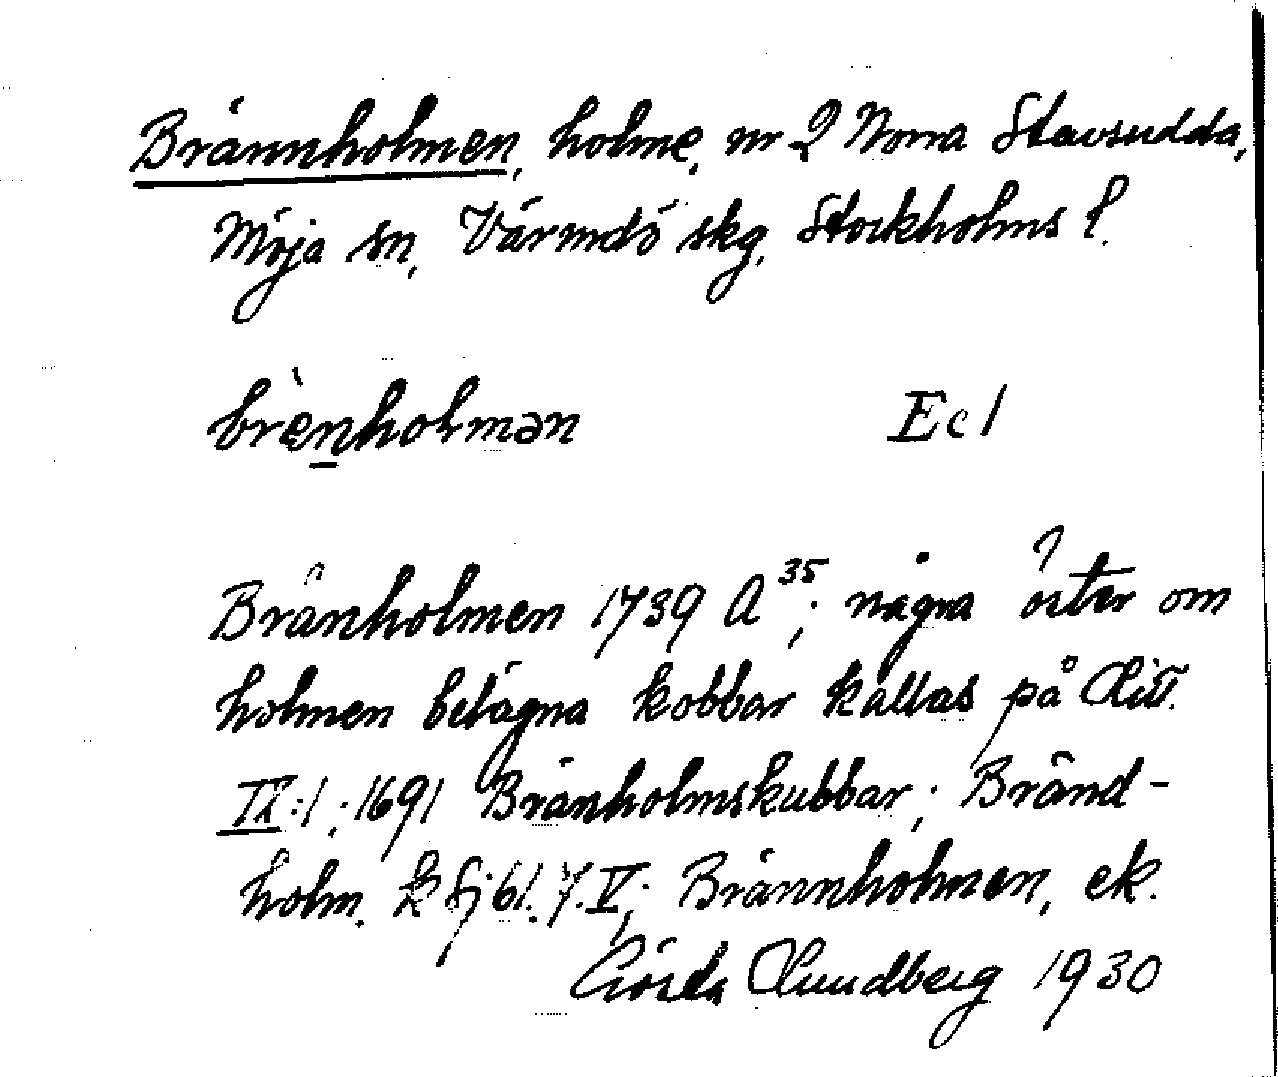 Brännholmen, holme, nr 2 Norra Stavsudda,
Möja sn, Värmdö skg, Stockholms l.
brènholmən Ecl
Brånholmen 1739 A 35; några öster om
holmen belägna kobbar kallas på Litt.
IX:1; 1691 Bränholmskubbar; Bränd-
holm. k fj 61.7.V; Brännholmen, ek.
Gösta Lundberg 1930